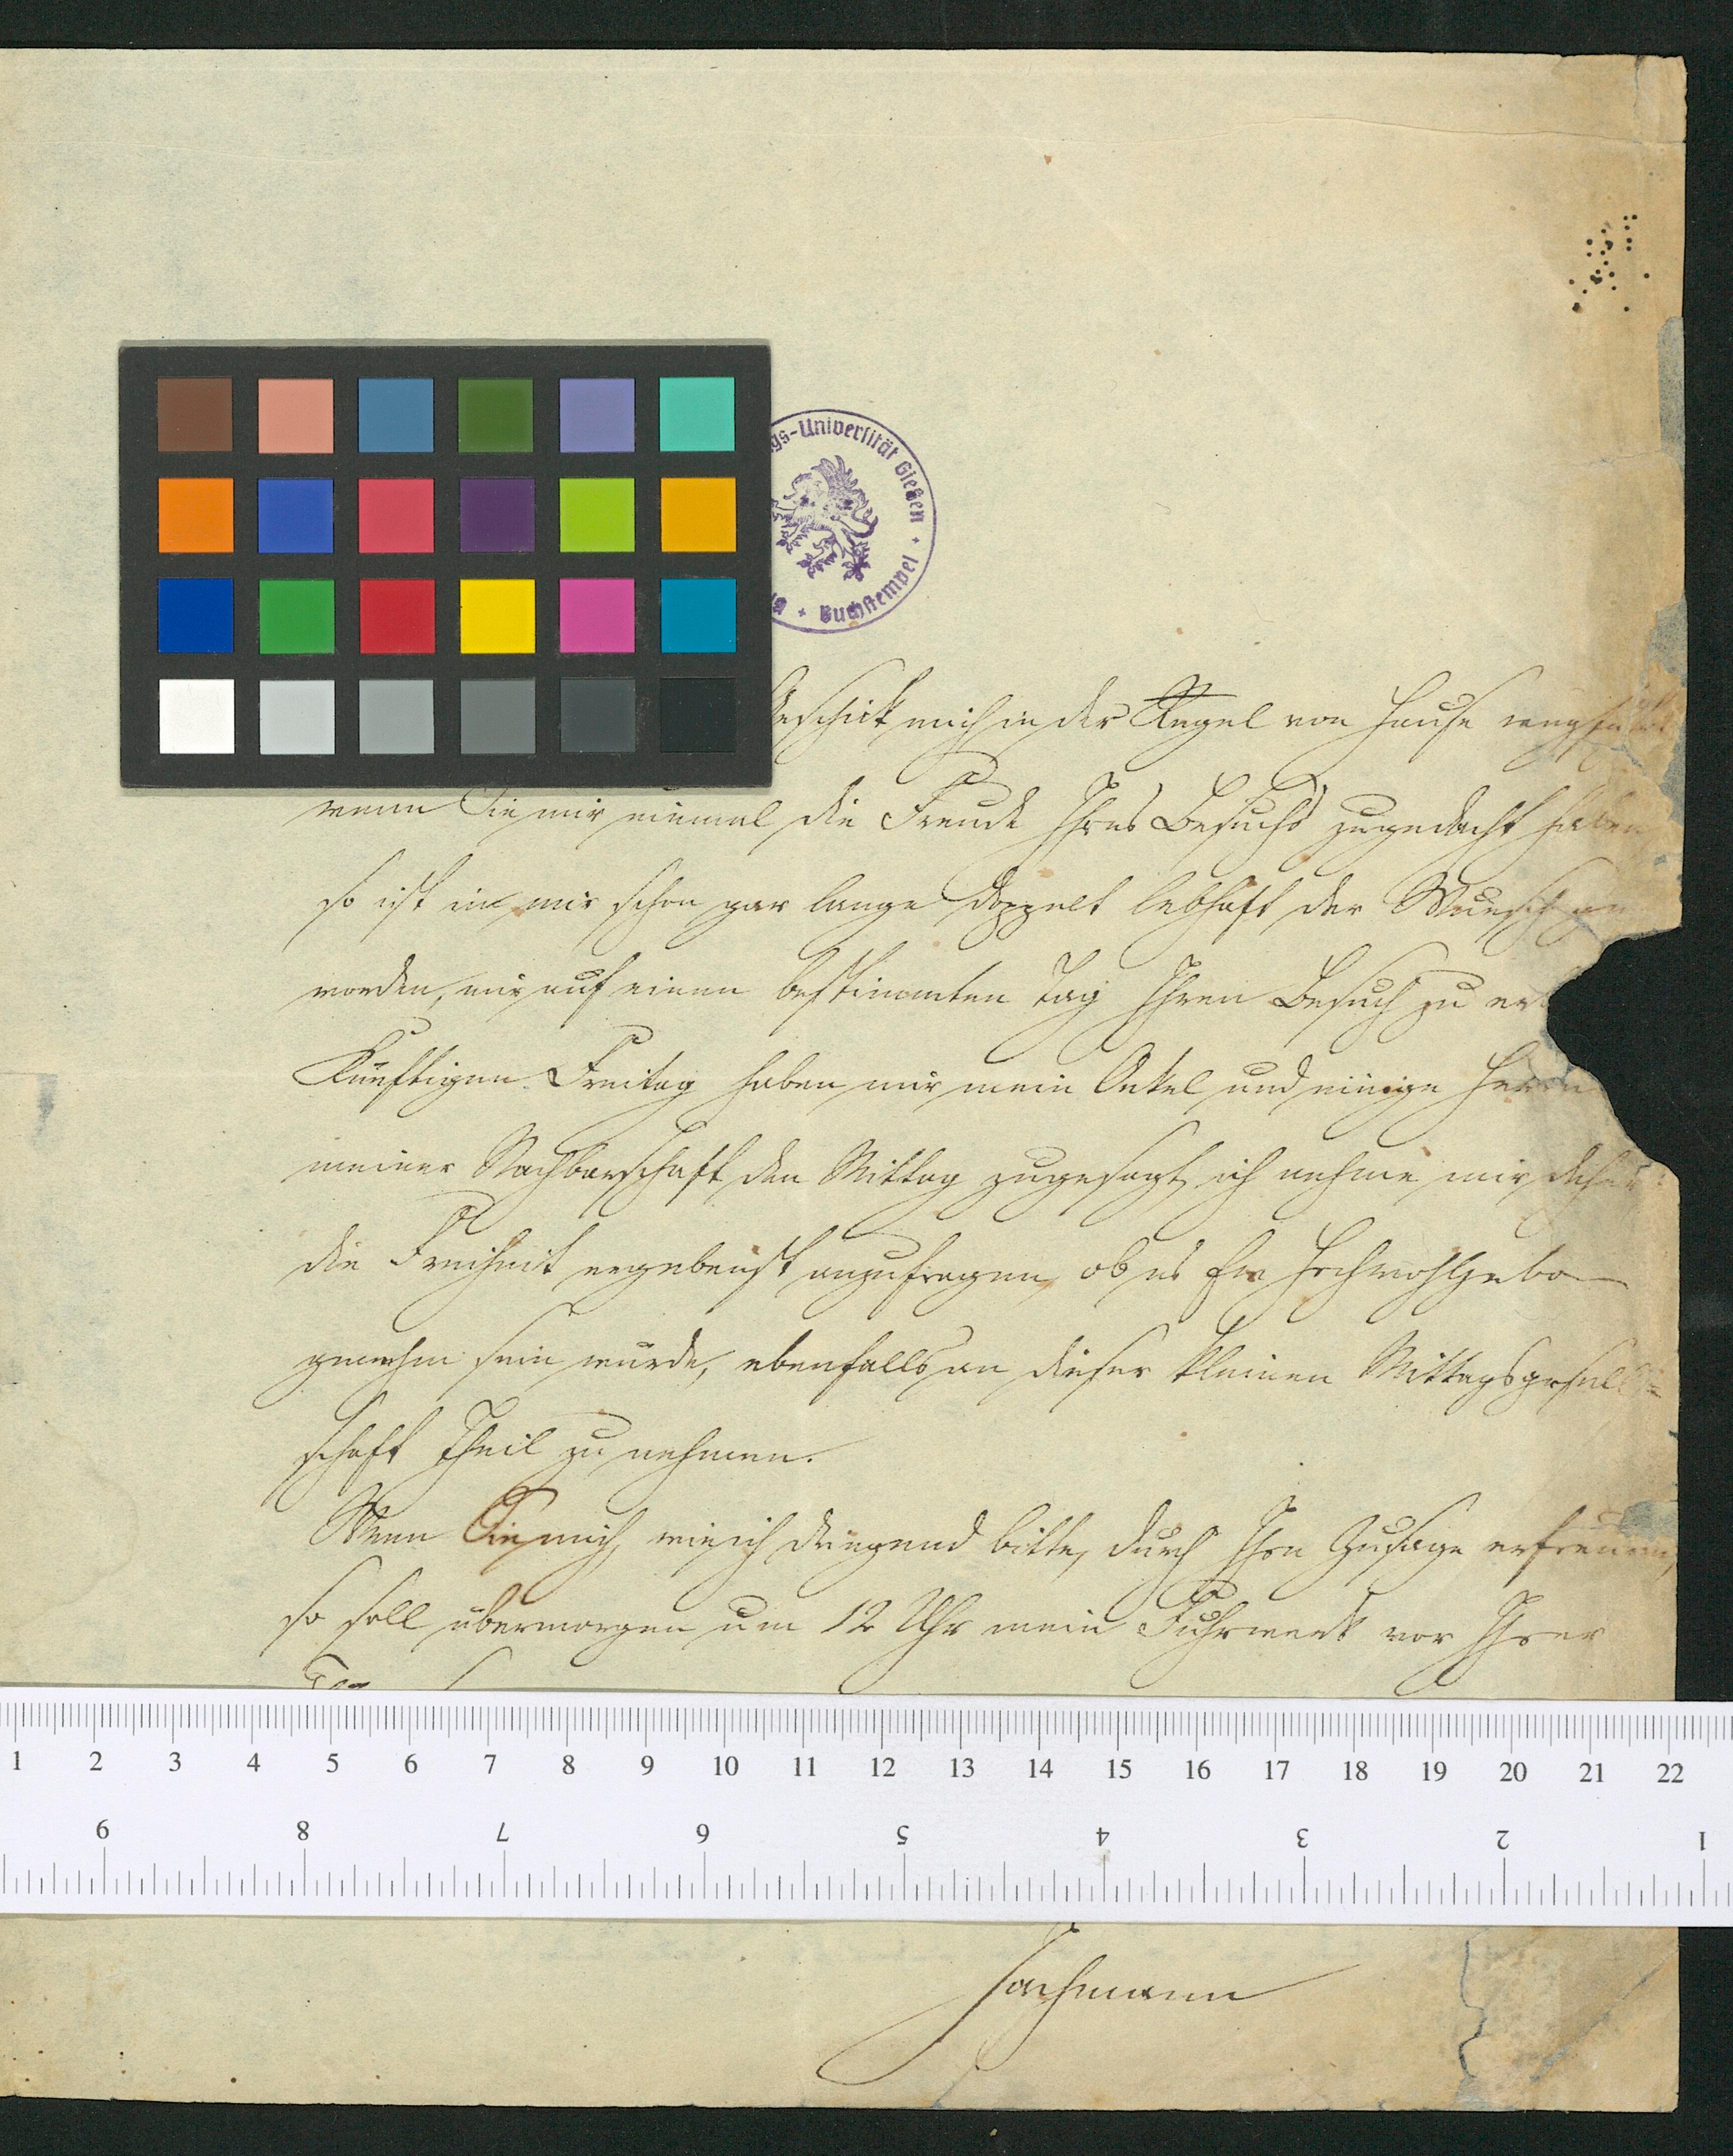 gs-Universität Gießen
Buchstempel
Geschick mich in der Regel von Hause wegführt
wenn Sie mir einmal die Freude Ihres Besuchs zugedacht haben
so ist in mir schon gar lange doppelt lebhaft der Wunsch
worden, mir auf einen bestimmten Tag Ihren Besuch zu er
Künftigen Freitag haben mir mein Onkel und einige Herrn
meiner Nachbarschaft den Mittag zugesagt, ich nehme mir daher
die Freiheit ergebenst anzufragen, ob es Ew Hochwohlgebo
genehm sein würde, ebenfalls an dieser kleinen Mittagsgesell=
schaft Theil zu nehmen.
Wenn Sie mich, wie ich dringend bitte, durch Ihre Zusage erfreuen,
so soll übermorgen um 12 Uhr mein Fuhrwerk vor Ihrer
1 2 3 4 5 6 7 8 9 10 11 12 13 14 15 16 17 18 19 20 21 22
9 8 7 6 5 4 3 2 1
Jachmann